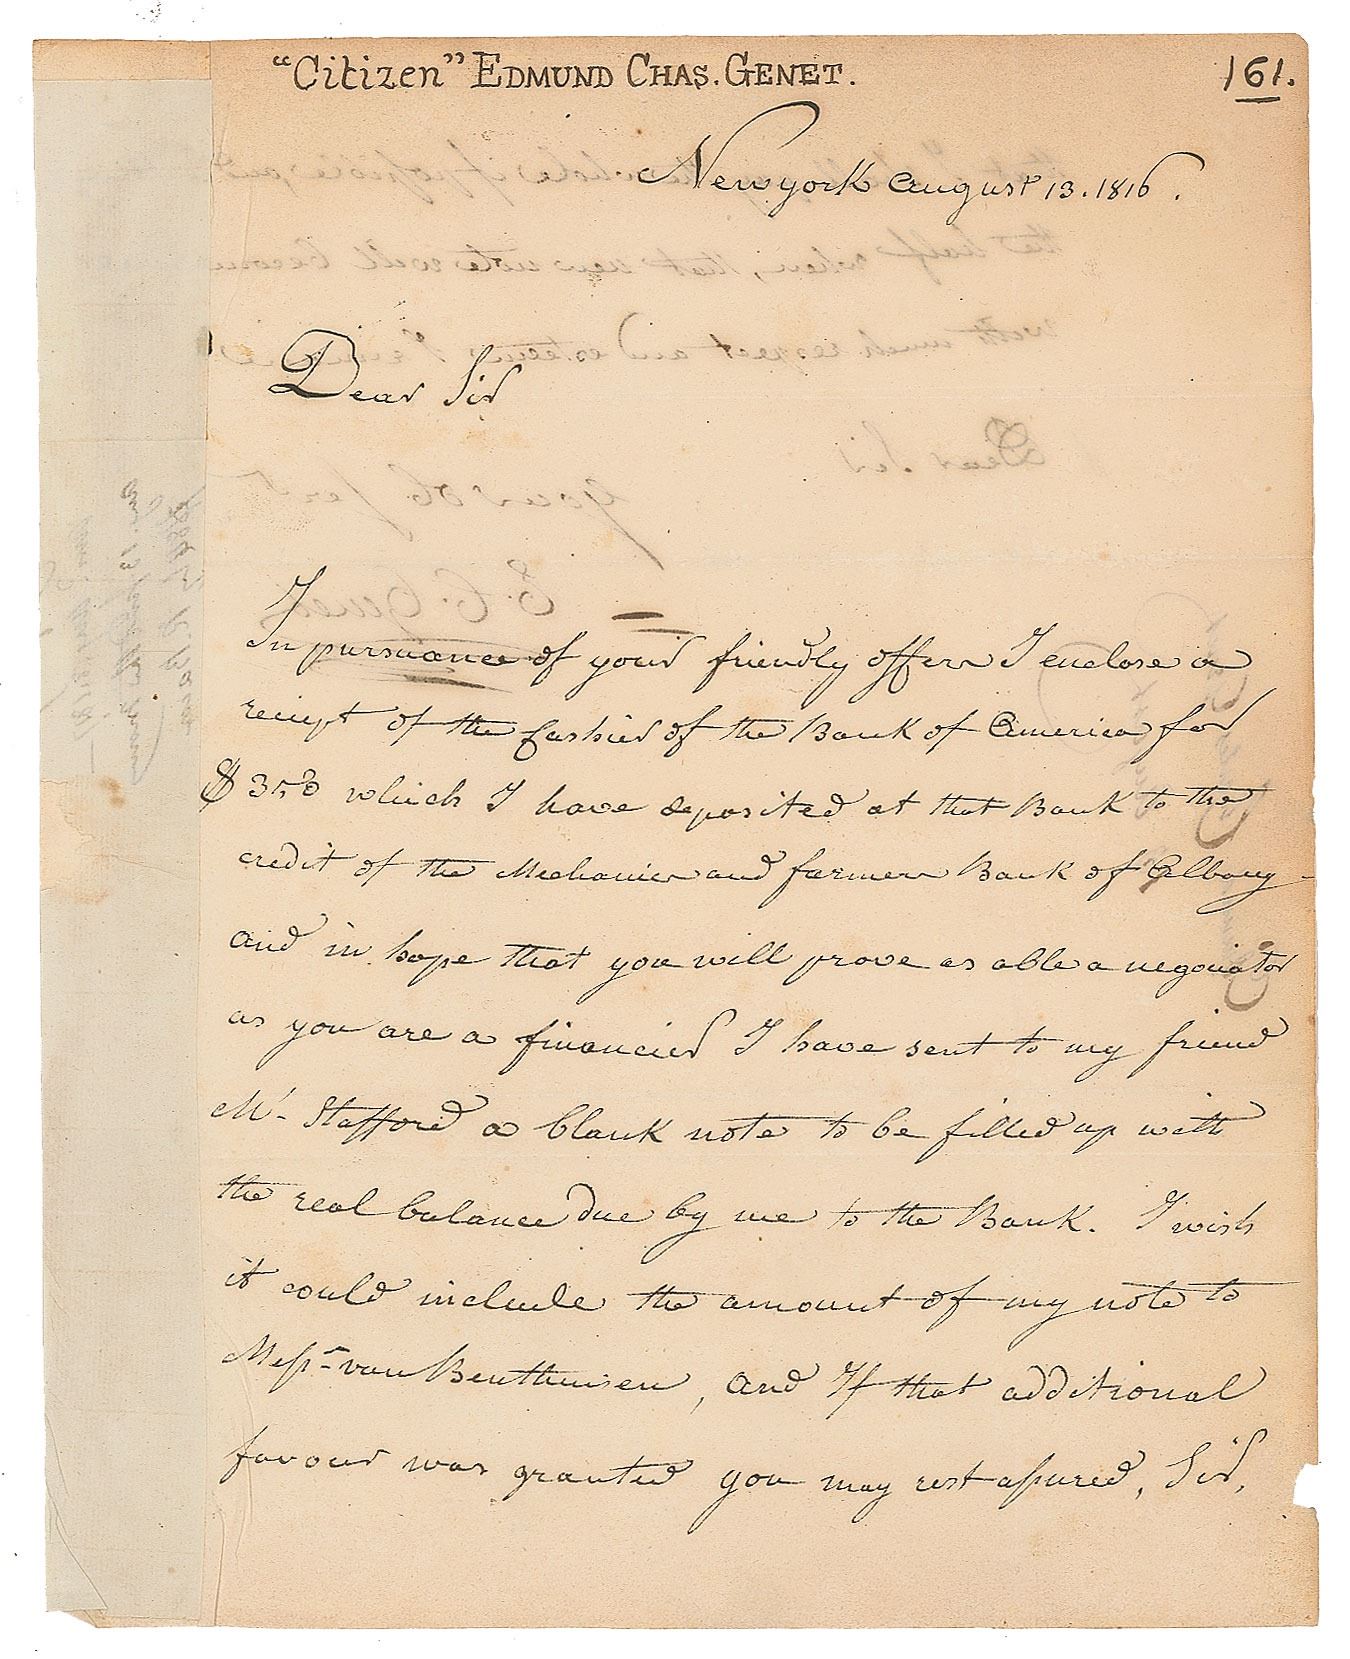 "Citizen" EDMUND CHAS. GENET.
161.
Newyork august 13. 1816.
Dear Sir
In pursuance of your friendly offers I enclose a
reciept of the Cashier of the Bank of America for
$ 350 which I have deposited at that Bank to the
credit of the Mechanics and farmers Bank of Albany
and in hope that you will prove as able a negociator
as you are a financier I have sent to my friend
Mr. Stafford a blank note to be filled up with
the real balance due by me to the Bank. I wish
it could include the amount of my note to
Messrs van Benthuisen, and If that additional
favour was granted you may rest assured, Sir,